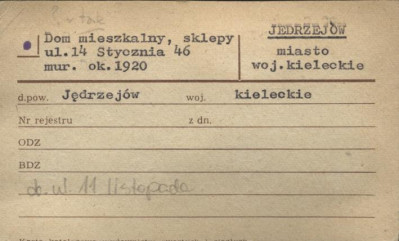 Dom mieszkalny, sklepy
ul.14 Stycznia 46
mur. ok.1920
JĘDRZEJÓW
miasto
woj.kieleckie
d.pow. Jędrzejów woj. kieleckie
Nr rejestru z dn.
ODZ
BDZ
ob. ul. 11 listopada